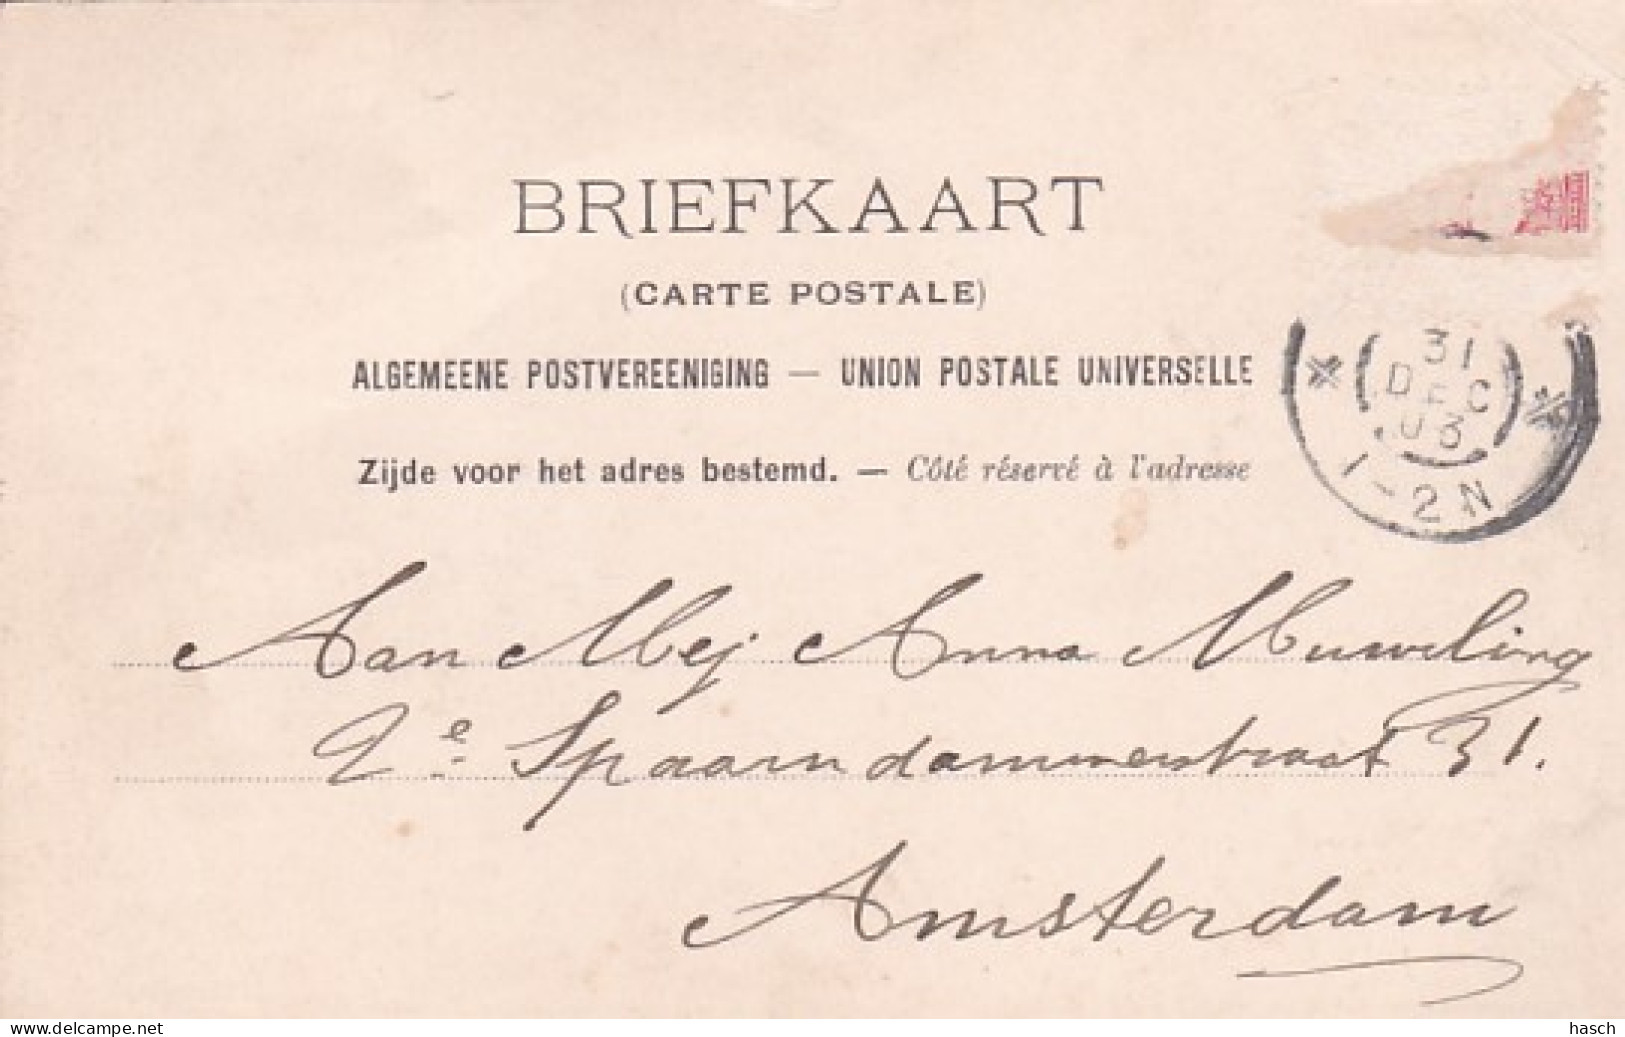 BRIEFKAART
(CARTE POSTALE)
ALGEMEENE POSTVEREENIGING — UNION POSTALE UNIVERSELLE
Zijde voor het adres bestemd. — Côté réservé à l'adresse
31
DEC
03
1-2N
Aan Mej Anna Muurling
2e Spaarndammerstraat 31.
Amsterdam
www.delcampe.net
hasch